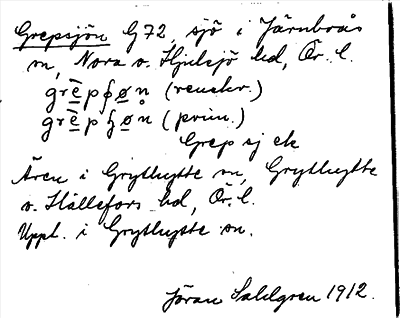 Grepsjön G72, sjö i Järnboås
sn, Nora o. Hjulsjö hd, Ör. l.
grèpʃøn (renskr.)
grèpɧøn (prim.)
Grepsj ek
Ären i Grythytte sn, Grythytte
o. Hällefors hd, Ör. l.
Uppt. i Grythytte sn.
Jöran Sahlgren 1912.